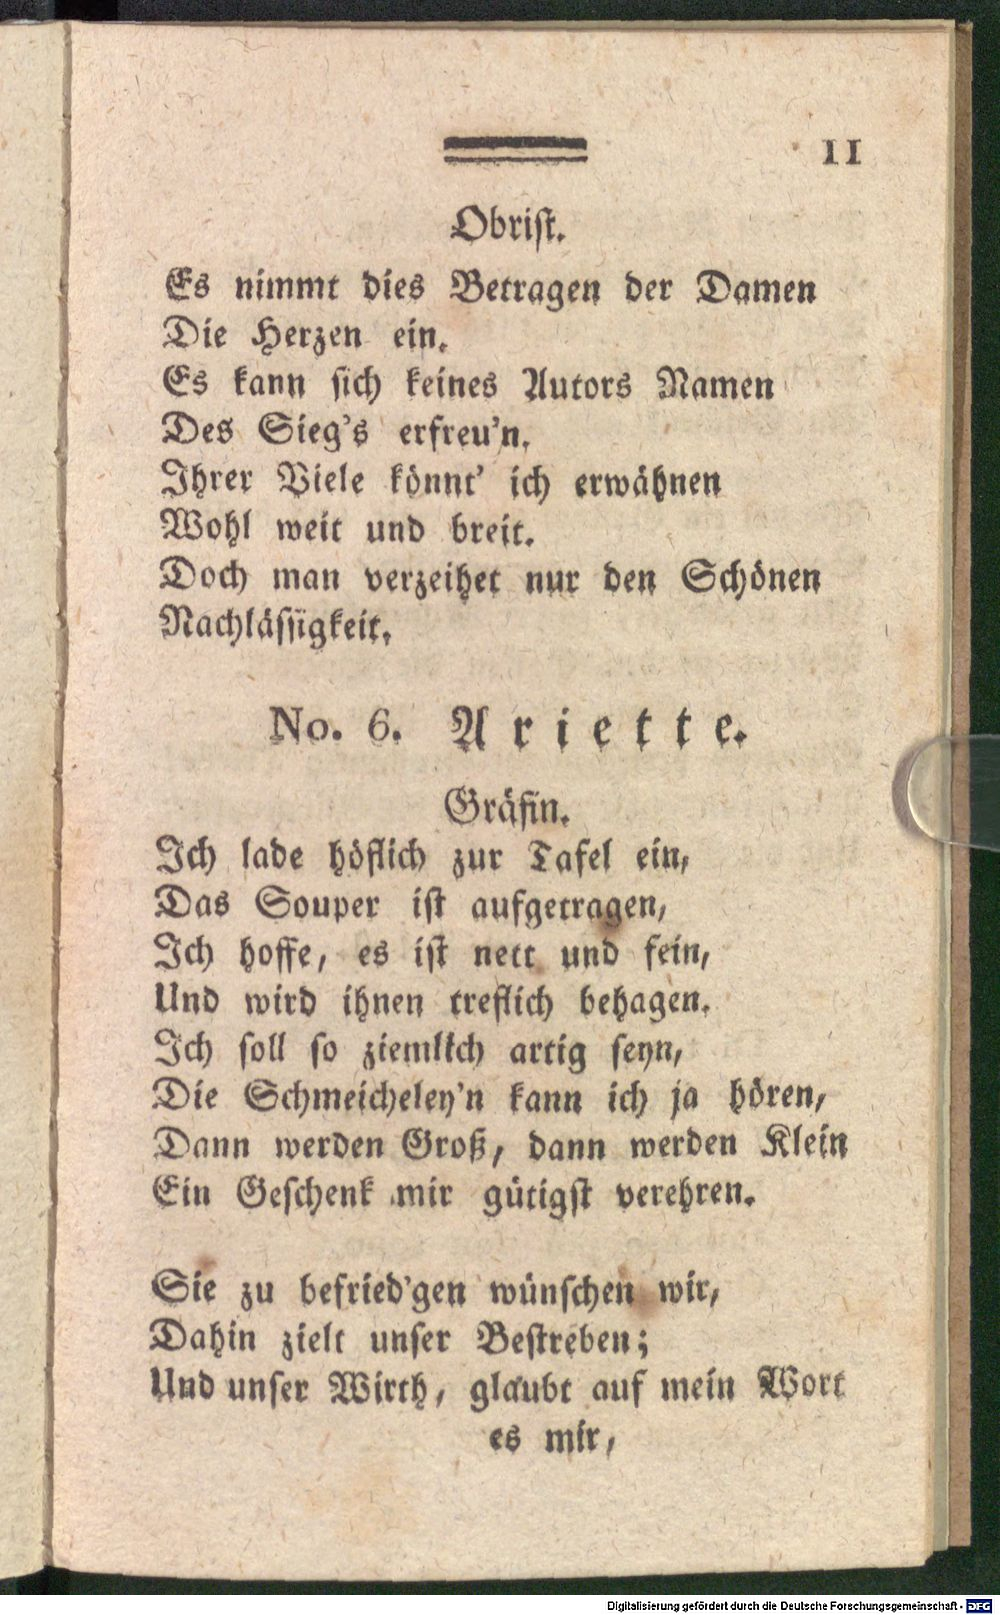 11
Obrist.
Es nimmt dies Betragen der Damen
Die Herzen ein.
Es kann sich keines Autors Namen
Des Sieg's erfreu'n.
Ihrer Viele könnt' ich erwähnen
Wohl weit und breit.
Doch man verzeihet nur den Schönen
Nachlässigkeit.
No. 6. Ariette.
Gräfin.
Ich lade höflich zur Tafel ein,
Das Souper ist aufgetragen,
Ich hoffe, es ist nett und fein,
Und wird ihnen treflich behagen.
Ich soll so ziemlich artig seyn,
Die Schmeicheley'n kann ich ja hören,
Dann werden Groß, dann werden Klein
Ein Geschenk mir gütigst verehren.
Sie zu befried'gen wünschen wir,
Dahin zielt unser Bestreben;
Und unser Wirth, glaubt auf mein Wort
es mir,
Digitalisierung gefördert durch die Deutsche Forschungsgemeinschaft - DFG